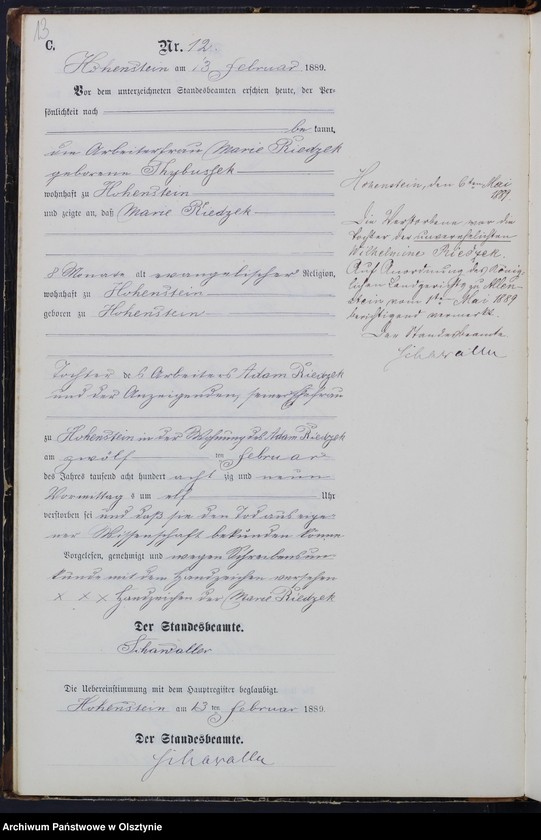 13
C. Nr. 12
Hohenstein am 13 Februar 1889.
Vor dem unterzeichneten Standesbeamten erschien heute, der Per-
sönlichkeit nach
be kannt,
die Arbeiterfrau Marie Riedzek
geborene Thybussek
wohnhaft zu Hohenstein
und zeigte an, daß Marie Riedzek
8 Monate alt evangelischer Religion,
wohnhaft zu Hohenstein
geboren zu Hohenstein
Tochter des Arbeiters Adam Riedzek
und der Anzeigenden, seiner Ehefrau
zu Hohenstein in der Wohnung des Adam Riedzek
am zwölf ten Februar
des Jahres tausend acht hundert acht zig und neun
Vormittags um elf Uhr
verstorben sei und daß sie den Tod aus eige-
ner Wissenschaft bekunden könne
Vorgelesen, genehmigt und wegen Schreibensun-
kunde mit dem Handzeichen versehen
x x x Handzeichen der Marie Riedzek
Der Standesbeamte.
Schawaller
Die Uebereinstimmung mit dem Hauptregister beglaubigt.
Hohenstein am 13 ten Februar 1889.
Der Standesbeamte.
Schawaller
Hohenstein, den 6ten Mai
1889
Die Verstorbene war die
Tochter der unverehelichten
Wilhelmine Riedzek.
Auf Anordnung des König-
lichen Landgerichts zu Allen-
stein vom 1ten Mai 1889
berichtigend vermerkt.
Der Standesbeamte
Schawaller
Archiwum Państwowe w Olsztynie